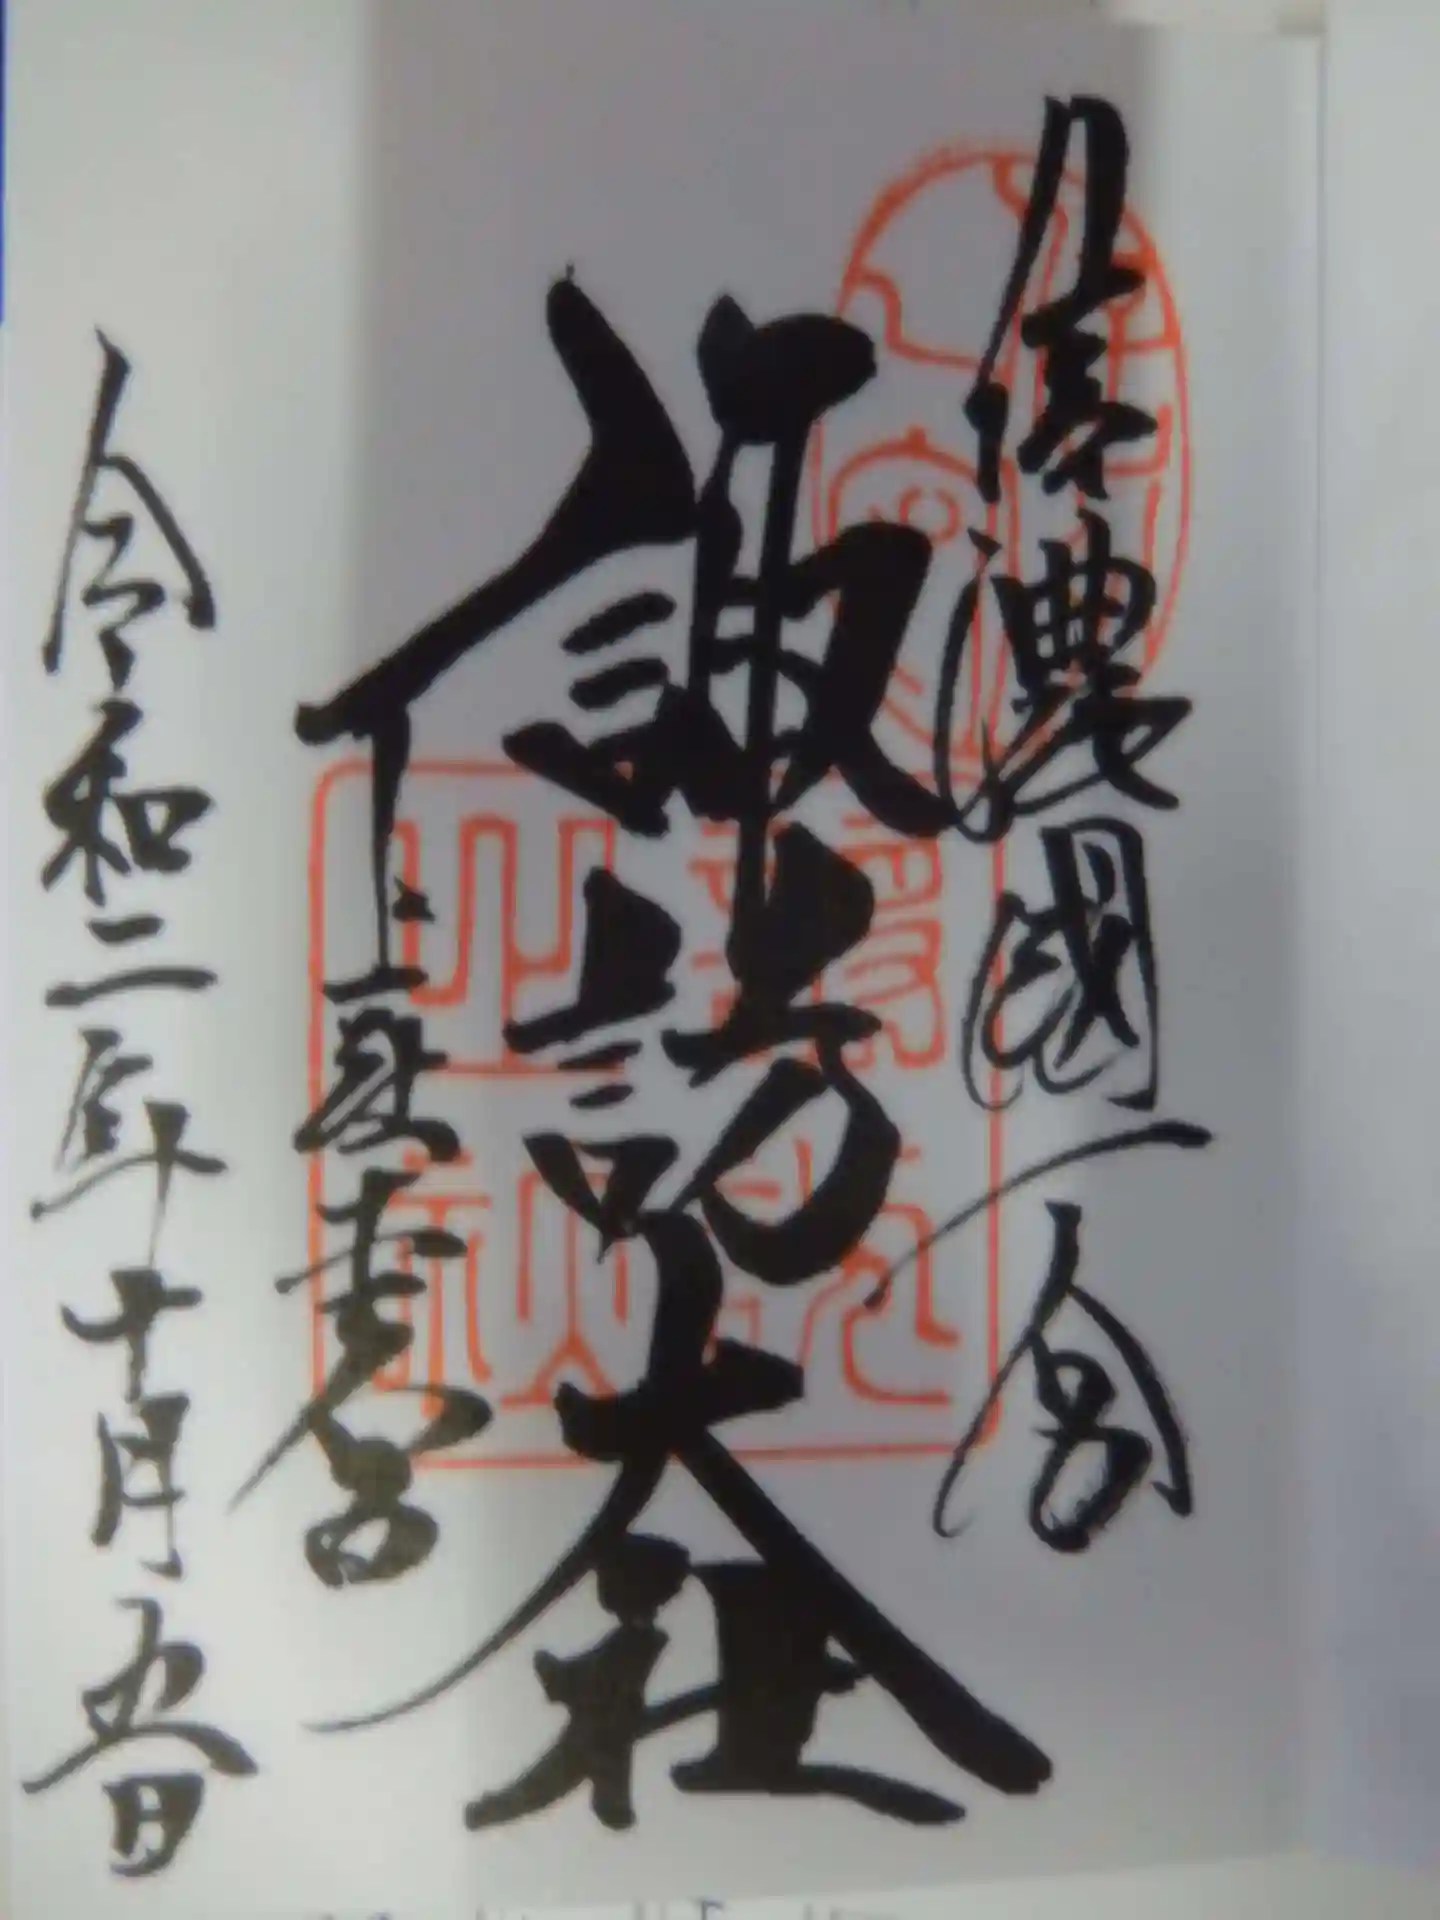 信濃國一宮
諏訪大社
下社春宮
令和二年十月五日